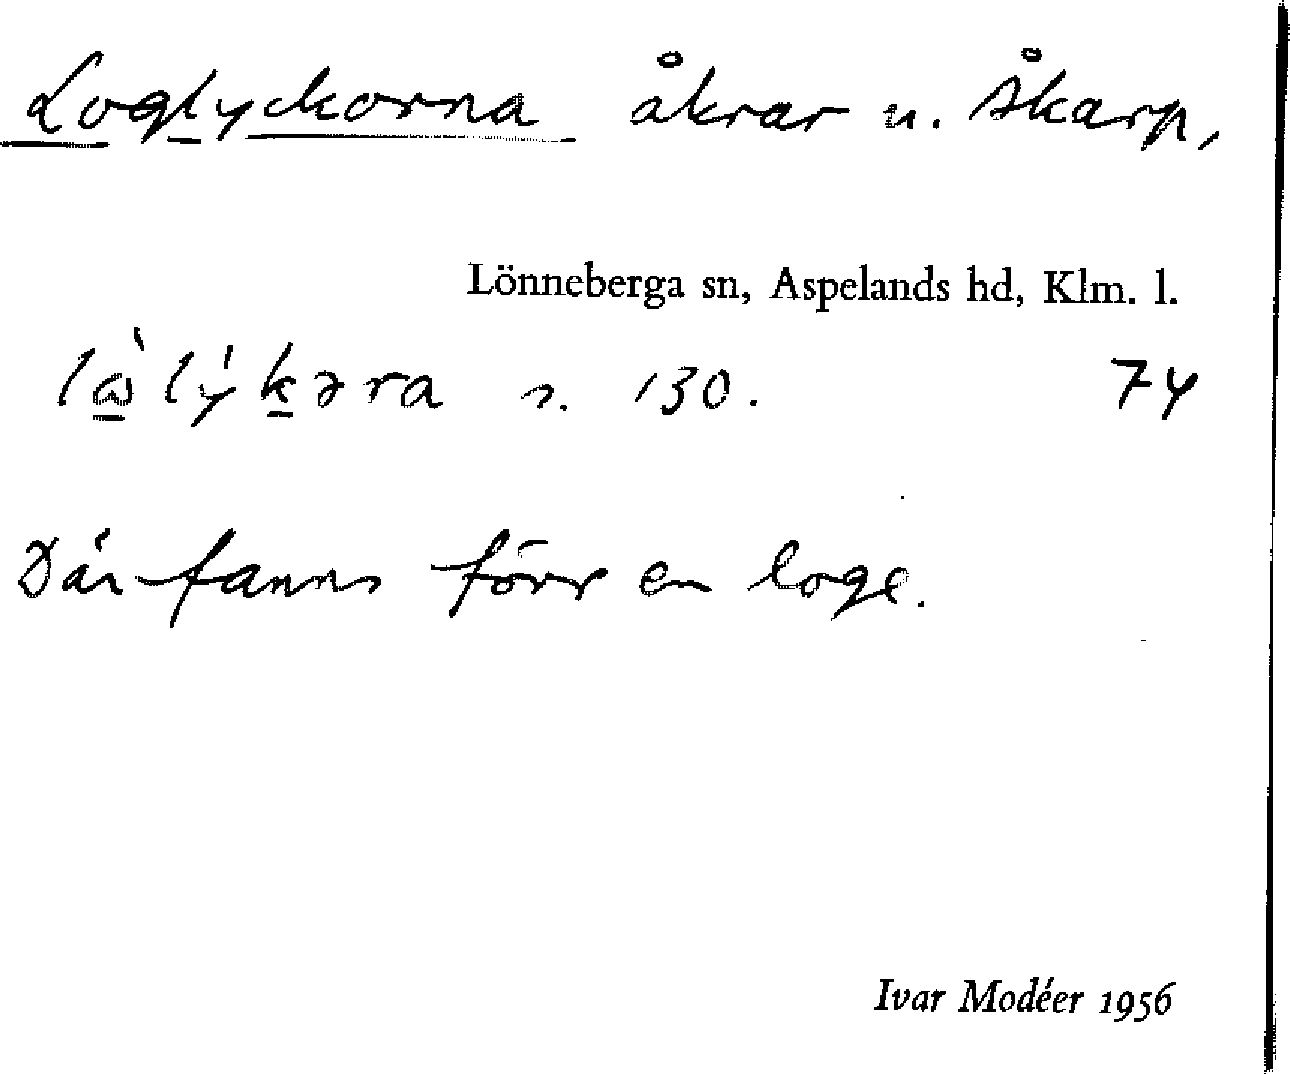 Loglyckorna åkrar u. Åkarp,
Lönneberga sn, Aspelands hd, Klm. l.
s. 130. 74
Där fanns förr en loge.
Ivar Modéer 1956